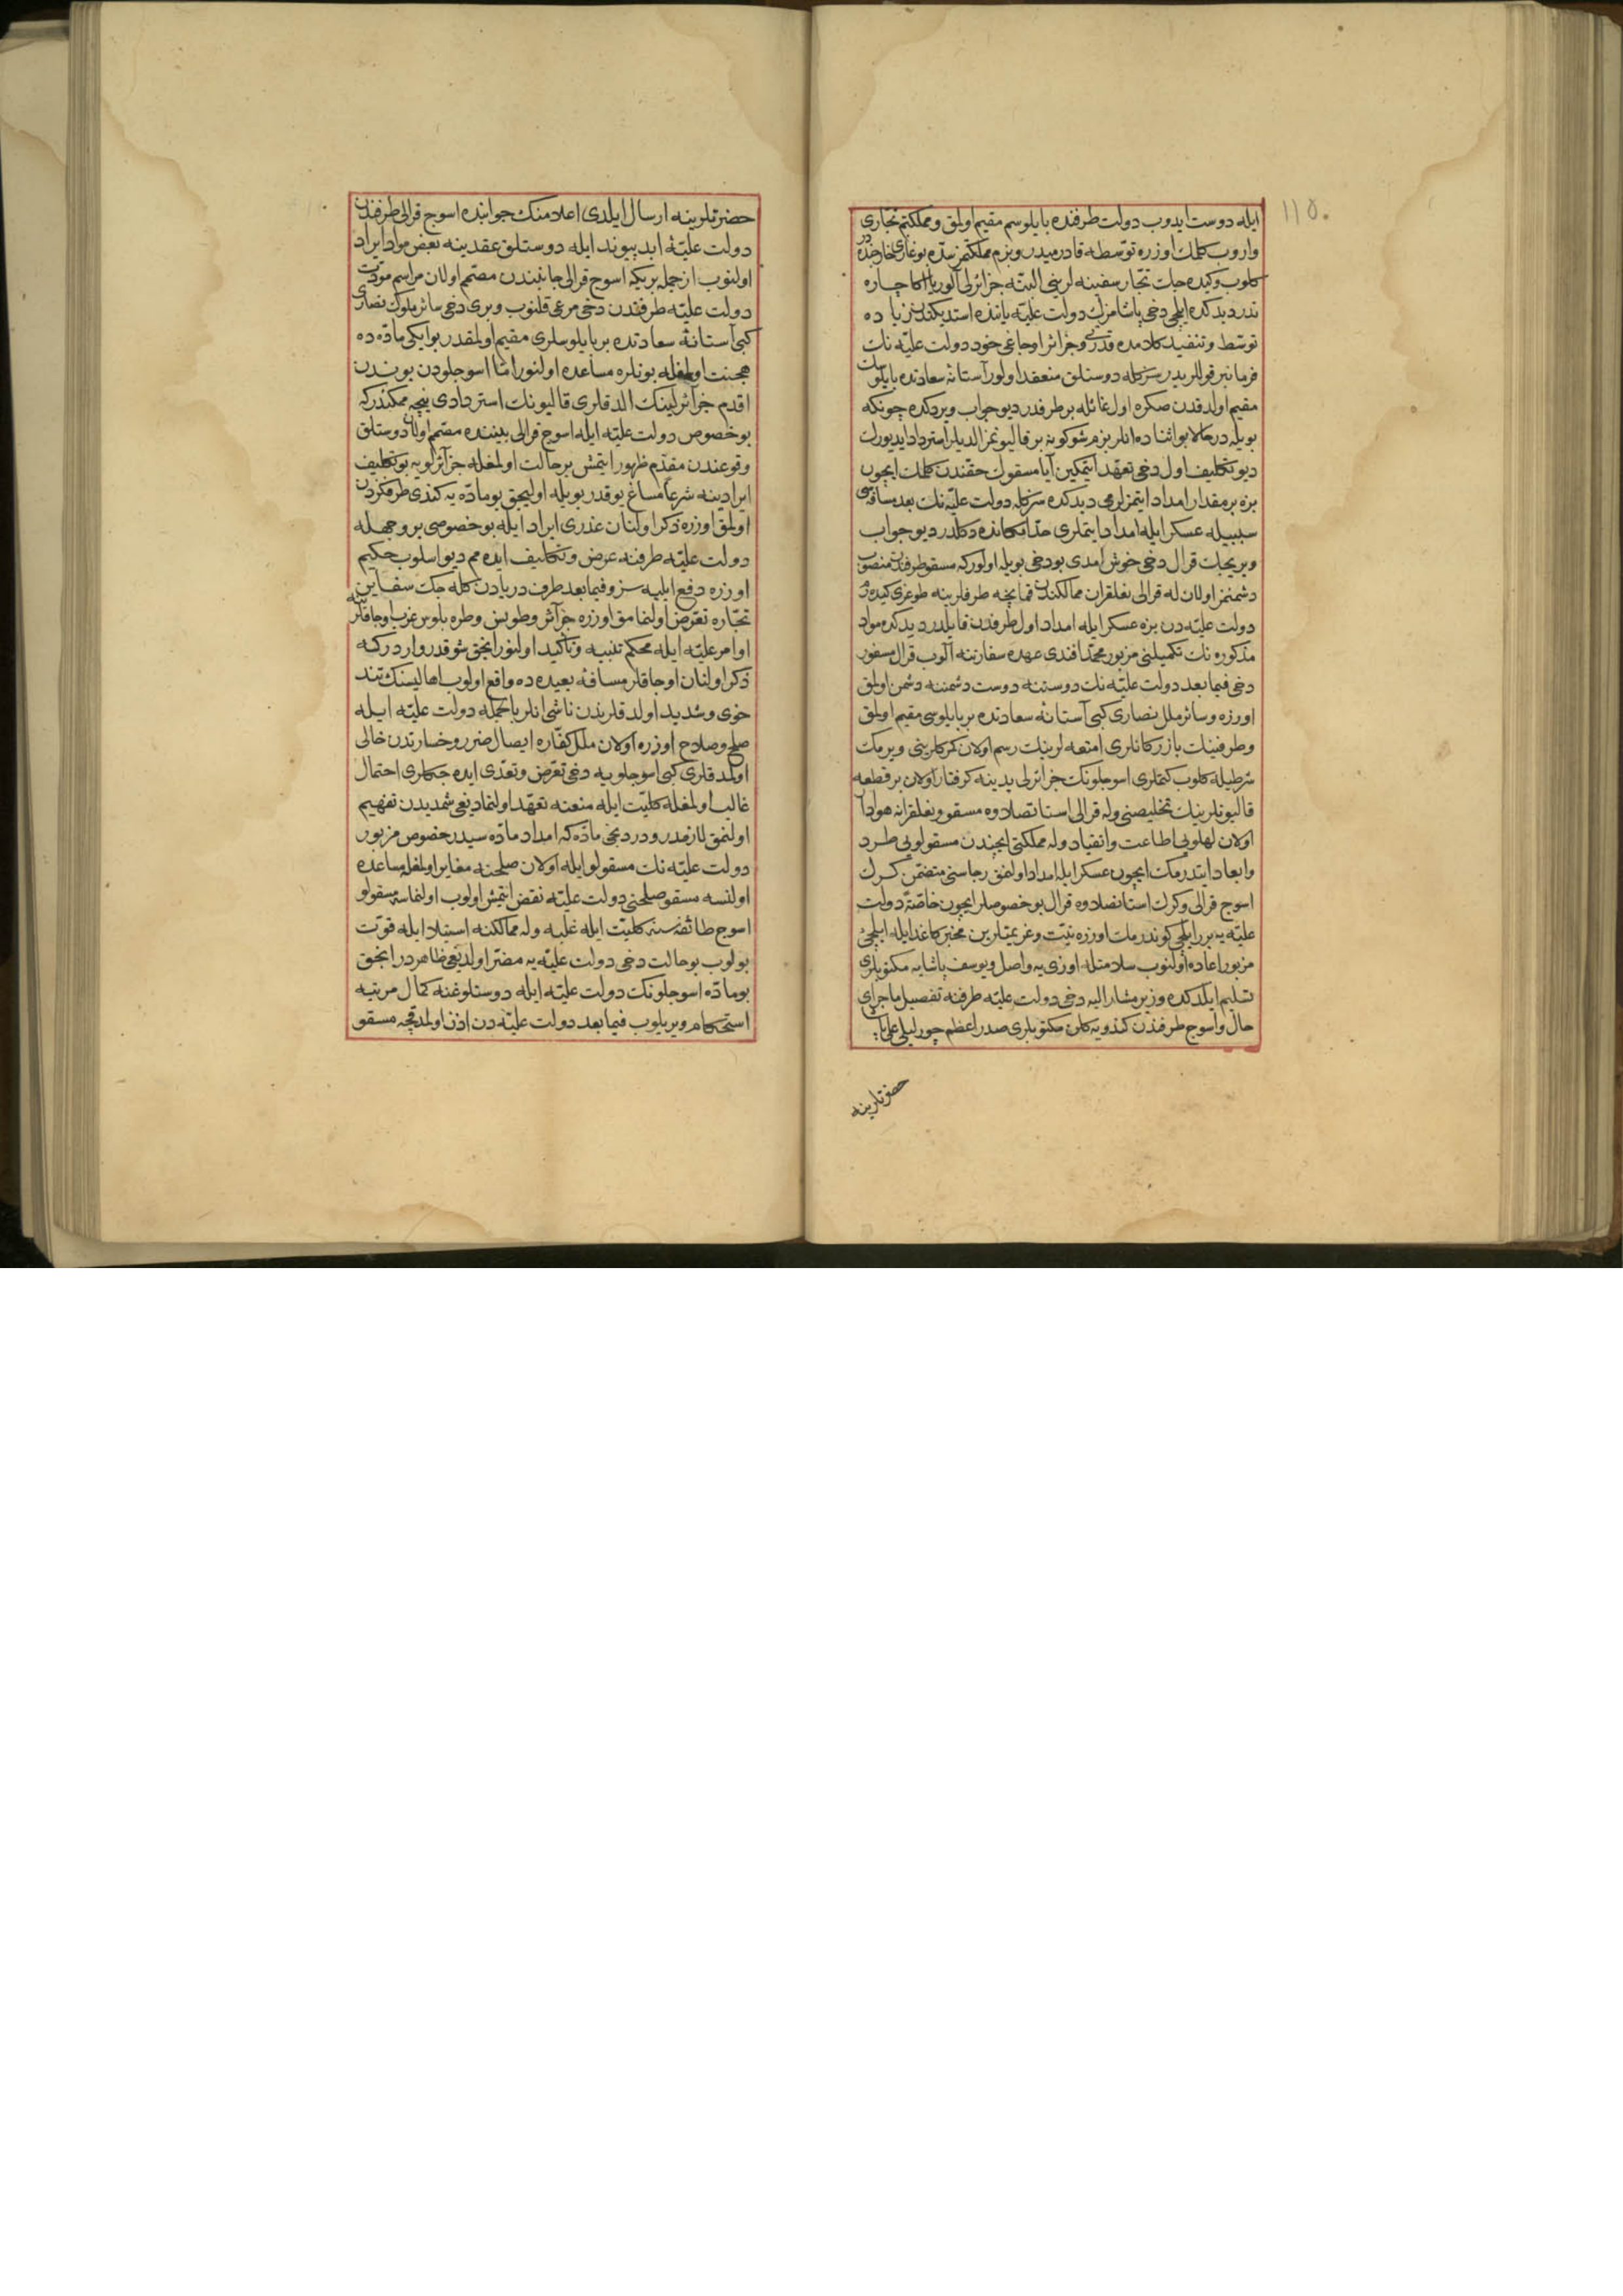 ١١٥.
ايله دوست ايدوب دولت طرفنده بايلوسم مقيم اولمق ومملكتم تجارى
واروب كلمك اوزره توسطه قادرميدر وبزم مملكتمز سته بوغازى خارجنده در
كلوب وكيده جك تجار سفينه لرينى البته جزائرلى آلور يا اكا چاره
ندر ديدكده ايلچى دخى پاشامزك دولت عليه ياننده استديكندن زياده
توسط وتنفيذ كلامده قدرتى وجزائر اوجاغى خود دولت عليه نك
فرمانبر قوللريدر سزكله دوستلق منعقد اولور آستانۀ سعادتده بايلوسك
مقيم اولدقدن صكره اول غائله بر طرفدر ديو جواب ويردكده چونكه
بويله در حالا بو اثناده انلر بزم شوكونه بر قاليونمز الديلر استرداد ايديورك
ديو تكليف اول دخى تعهد ايتمكين آيا مسقوك حقندن كلمك ايچون
بزه بر مقدار امداد ايتمزلرمى ديدكده سزكله دولت عليه نك بعد مسافه سى
سببيله عسكر ايله امداد ايتملرى حد امكانده دكلدر ديو جواب
ويريجك قرال دخى خوش امدى بو دخى بويله اولور كه مسقو طرفندن منصوب
دشمنمز اولان له قرالى نعلقران ممالكندن قمانچه طرفلرينه طوغرى كيده رز
دولت عليه دن بزه عسكر ايله امداد اول طرفدن قابلدر ديدكده مواد
مذكوره نك تكميلنى مزبور محمد افندى عهده سفارتنه آلوب قرال مسفور
دخى فيما بعد دولت عليه نك دوستنه دوست دشمننه دشمن اولمق
اورزه وسائر ملل نصارى كبى آستانۀ سعادتده بر بايلوسى مقيم اولمق
وطرفينك بازركانلرى امتعه لرينك رسم اولان كمركلرينى ويرمك
شرطيله كلوب كتملرى اسوجلونك جزائرلى يدينه كرفتار اولان بر قطعه
قاليونلرينك تخليصنى وله قرالى استانصلاوه مسقو ونعلقرانه هوادار
اولان لهلويى اطاعت وانقياد وله مملكتى ايچندن مسقولويى طرد
وابعاد ايتدرمك ايچون عسكر ايله امداد اولنمق رجاسنى متضمن كرك
اسوج قرالى وكرك استانصلاوه قرال بو خصوصلر ايچون خاصة دولت
عليه يه برر ايلچى كوندرمك اوزره نيت وعزيمتلرين مخبر كاغد ايله ايلچئ
مزبور اعاده اولنوب سلامتله اوزى يه واصل ويوسف پاشايه مكتوبلرى
تسليم ايلدكده وزير مشار اليه دخى دولت عليه طرفنه تفصيل ماجراى
حال واسوج طرفندن كندويه كلن مكتوبلرى صدر اعظم چورليلى على پاشا
حضرتلرينه
حضرتلرينه ارسال ايلدى اعلامنك جوابنده اسوج قرالى طرفندن
دولت عليۀ ابد پيوند ايله دوستلق عقدينه بعض مواد ايراد
اولنوب ازجمله بريكه اسوج قرالى جانبندن مصمم اولان مراسم مودت
دولت عليه طرفندن دخى مرعى قلنوب وبرى دخى سائر ملوك نصارى
كبى آستانۀ سعادتده بر بايلوسلرى مقيم اولمقدر بو ايكى ماده ده
هجنت اولمغله بونلره مساعده اولنور اما اسوجلودن بوندن
اقدم جزائرلينك الدقلرى قاليونك استردادى نيجه ممكندر كه
بو خصوص دولت عليه ايله اسوج قرالى بيننده مصمم اولان دوستلق
وقوعندن مقدم ظهور ايتمش بر حالت اولمغله جزائرلويه بو تكليف
ايرادينه شرعا مساغ يوقدر بويله اوليجق بو ماده يه كندى طرفكزدن
اولمق اوزره ذكر اولنان عذرى ايراد ايله بو خصوصى بر وجهله
دولت عليه طرفنه عرض وتكليف ايده مم ديو اسلوب حكيم
اوزره دفع ايليه سز وفيما بعد طرف دريادن كله جك سفاين
تجاره تعرض اولنمامق اوزره جزائر وطونس وطرهبلوس غرب اوجاقلرينه
اوامر عليه ايله محكم تنبيه وتأكيد اولنور انجق شوقدر وارد كه
ذكر اولنان اوجاقلر مسافۀ بعيده ده واقع اولوب اهاليسنك تند
خوى وشديد اولدقلرندن ناشى انلر بالجمله دولت عليه ايله
صلح وصلاح اوزره اولان ملل كفاره ايصال ضرر وخسارتدن خالى
اولمدقلرى كبى اسوجلويه دخى تعرض وتعدى ايده جكلرى احتمال
غالب اولمغله كليت ايله منعنه تعهد اولنماديغى شمديدن تفهيم
اولنمق لازمدر ودردنجى ماده كه امداد ماده سيدر خصوص مزبور
دولت عليه نك مسقولو ايله اولان صلحنه مغاير اولمغله مساعده
اولنسه مسقو صلحنى دولت عليه نقض ايتمش اولوب اولنماسه مسقولو
اسوج طائفه سنه كليت ايله غلبه وله ممالكنه استيلا ايله قوت
بولوب بو حالت دخى دولت عليه يه مضر اولديغى ظاهردر انجق
بو ماده اسوجلونك دولت عليه ايله دوستلوغنه كمال مرتبه
استحكام ويريلوب فيما بعد دولت عليه دن اذن اولمدقجه مسقو